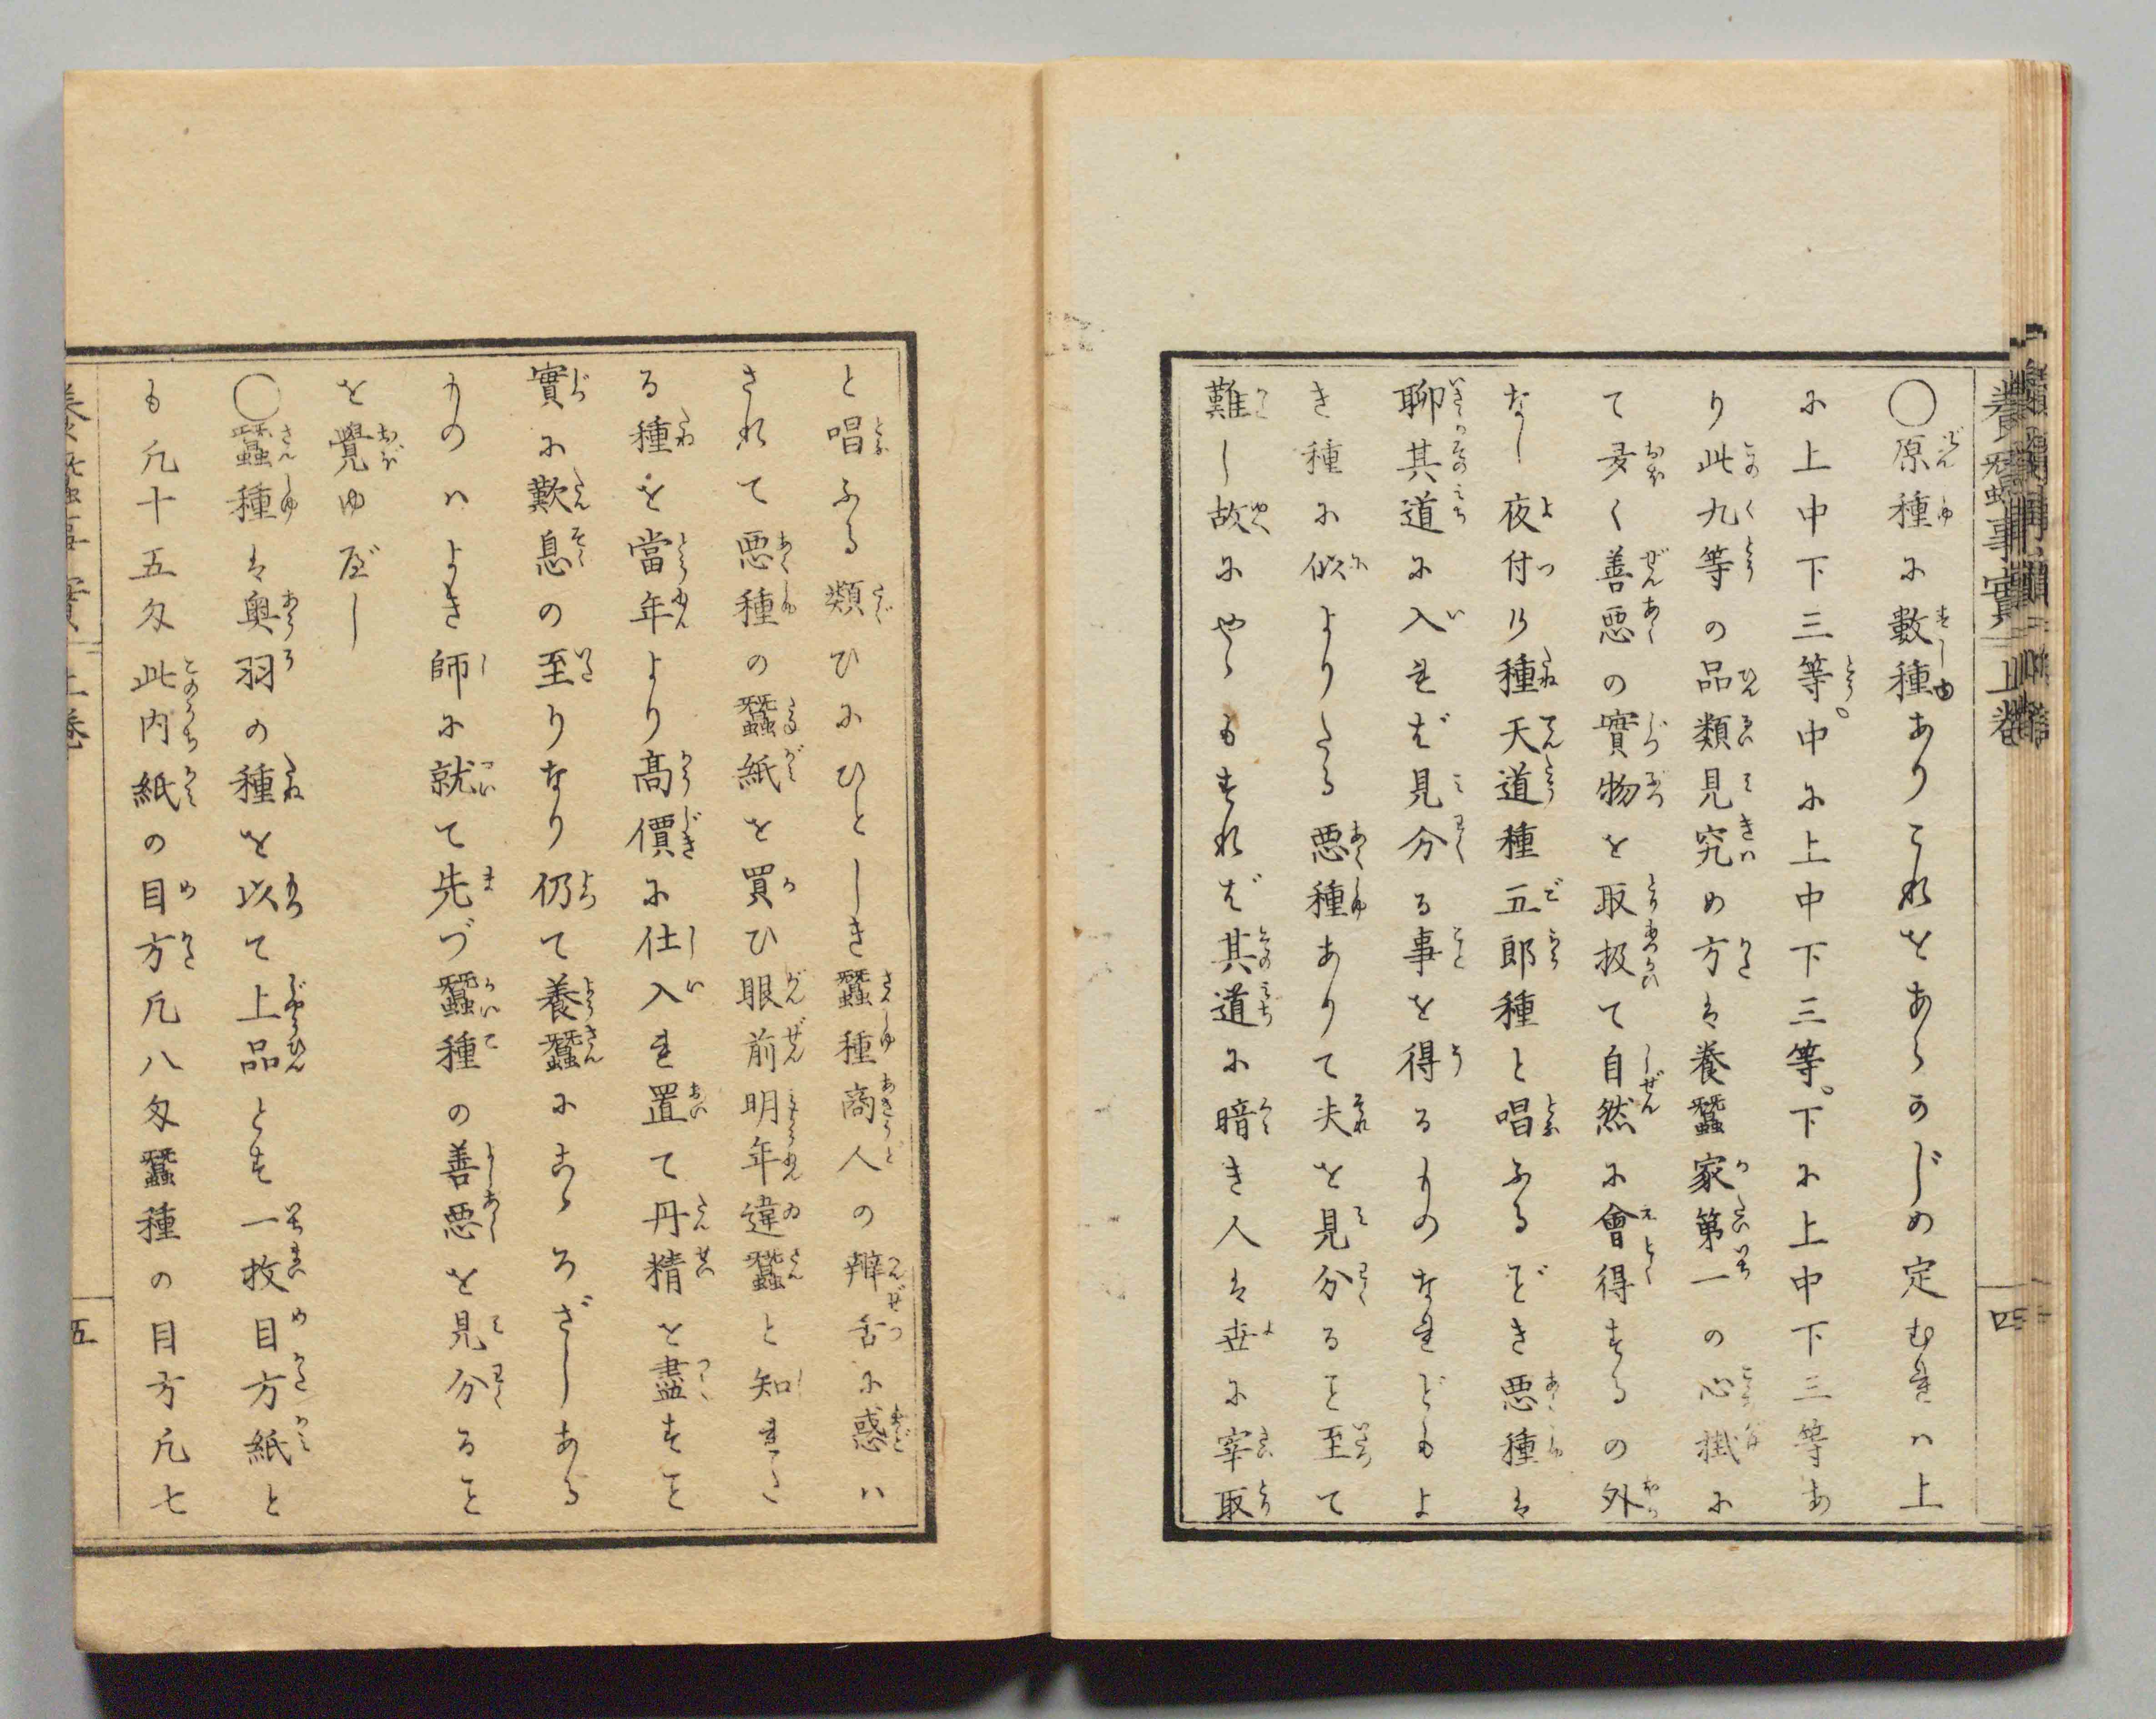 養蠶事實 上卷 四
〇原種に數種ありこれをあらかじめ定むれハ上
に上中下三等。中に上中下三等。下に上中下三等あ
り此九等の品類見究め方は養蠶家第一の心掛に
て多く善惡の實物を取扱て自然に會得するの外
なし夜付け種天道種五郎種と唱ふるごき悪種は
聊其道に入れば見分る事を得るものなれどもよ
き種に似よりたる悪種ありて夫を見分ること至て
難し故にやゝもすれば其道に暗き人は世に宰取
と唱ふる類ひにひとしき蠶種商人の辯舌に惑ハ
されて悪種の蠶紙を買ひ眼前明年違蠶と知れた
る種を當年より髙價に仕入れ置て丹精を盡すこと
實に歎息の至りなり仍て養蠶にこゝろざしある
ものハよき師に就て先づ蠶種の善悪を見分ること
を覺ゆべし
〇蠶種は奥羽の種を以て上品とす一枚目方紙と
も凡十五匁此内紙の目方凡八匁蠶種の目方凡七
五